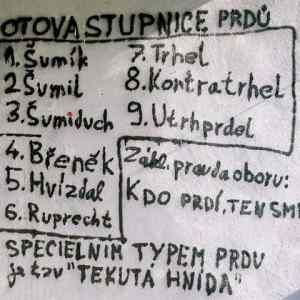 OTOVA STUPNICE PRDŮ
1. Šumík
2 Šumil
3. Šumiduch
4. Břeněk
5. Hvízdal
6. Ruprecht
7. Trhel
8. Kontratrhel
9. Utrhprdel
Zákl. pravda oboru:
KDO PRDÍ, TEN SMR
SPECIELNIM TYPEM PRDU
je tzv "TEKUTÁ HNÍDA"